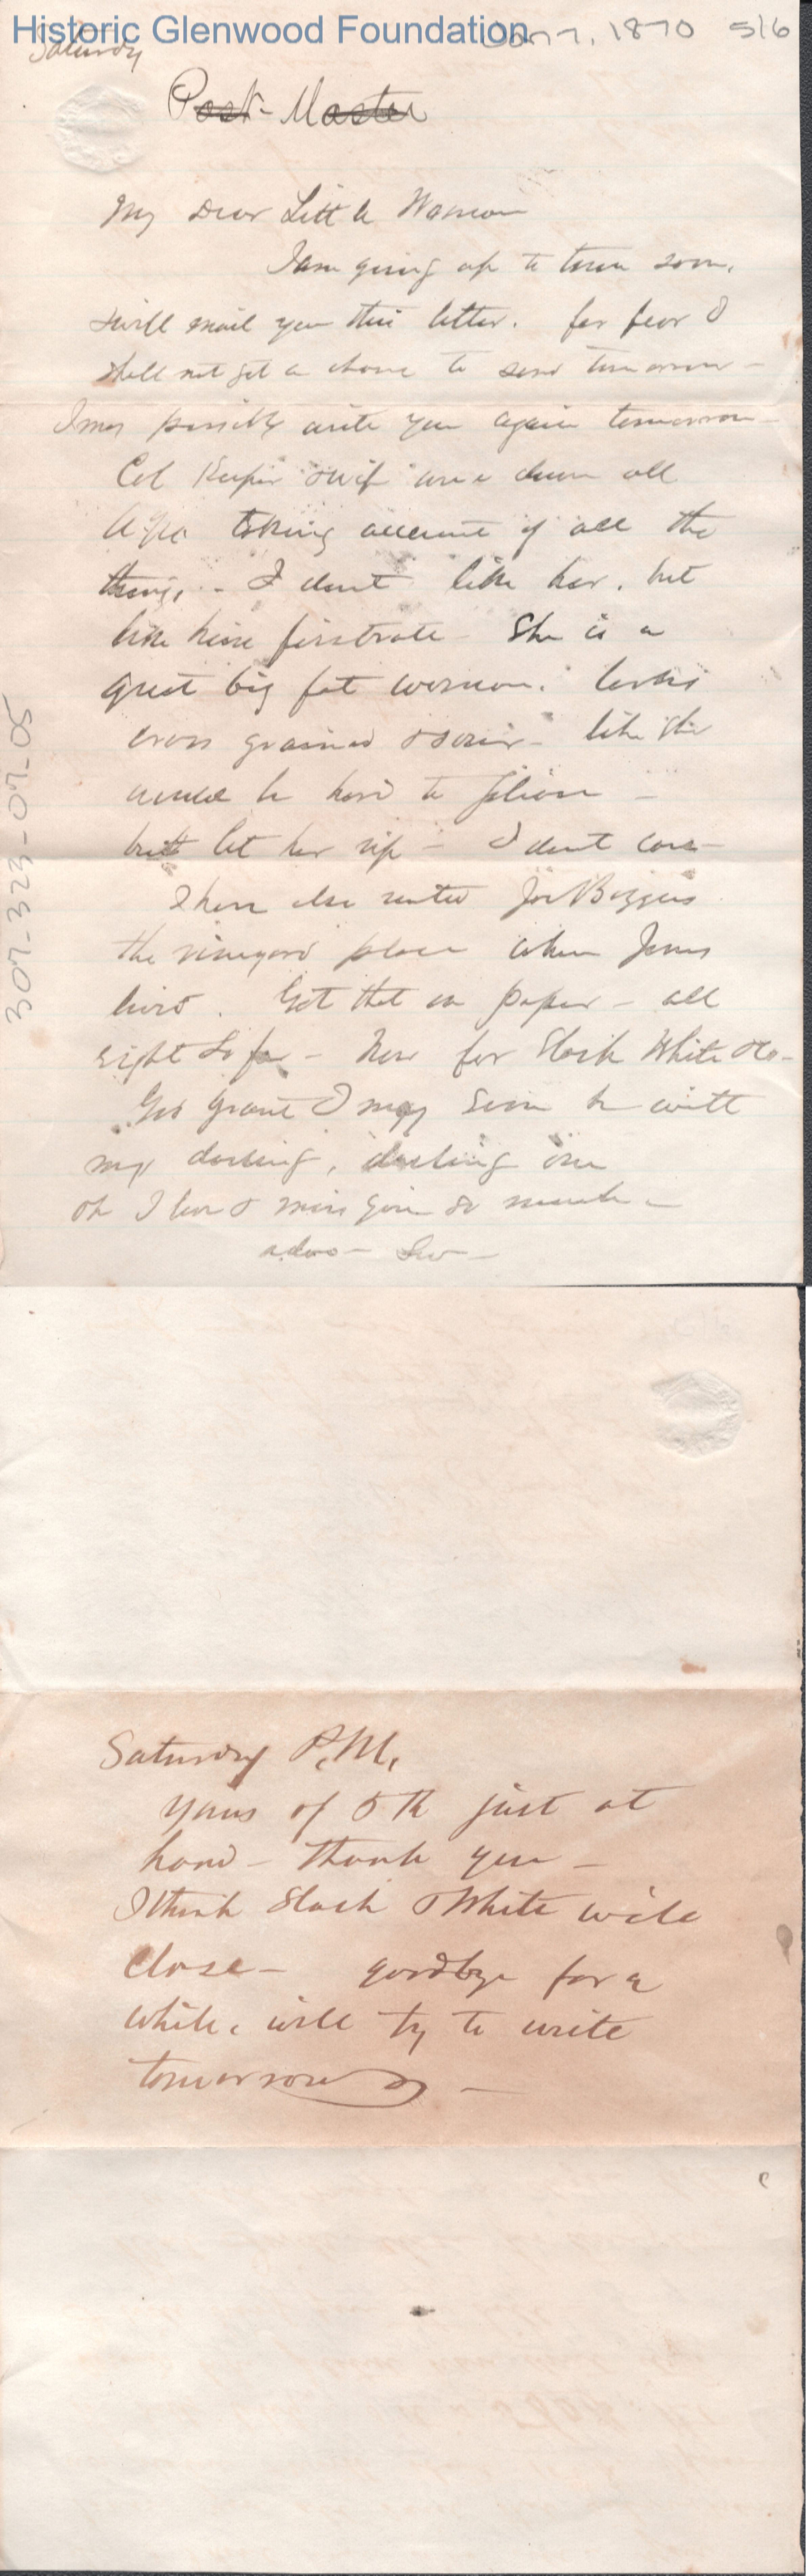 Historic Glenwood Foundation
Saturday
Jan 7, 1870 516
Post-Master
My Dear Little Woman
I am going up to town soon,
& will mail you this letter. for fear I
shall not get a chance to send tomorrow -
I may possibly write you again tomorrow -
Col & wife were down all
taking account of all the
things - I dont like her, but
like him firstrate - She is a
great big fat woman. looks
cross grained & sour - like she
would be hard to please -
but let her rip - I dont care -
I have also rented Joe Biggers
the vineyard place where Jones
lived. Got that on paper - all
right so far - Now for Slack White &Co -
God grant I may soon be with
my darling, darling one
oh I love & miss you so much -
adios -
307-323-07-05
Saturday P.M.
Yours of 5th just at
hand - thank you -
I think Slack & White will
close - goodbye for a
while, will try to write
tomorrow -